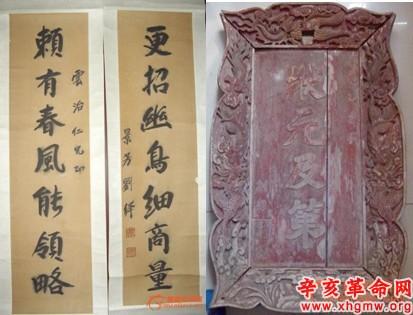 賴有春風能領略
雲治仁兄
更招幽鳥細商量
景芳劉繹
狀元及第
辛亥革命网
www.xhgmw.org